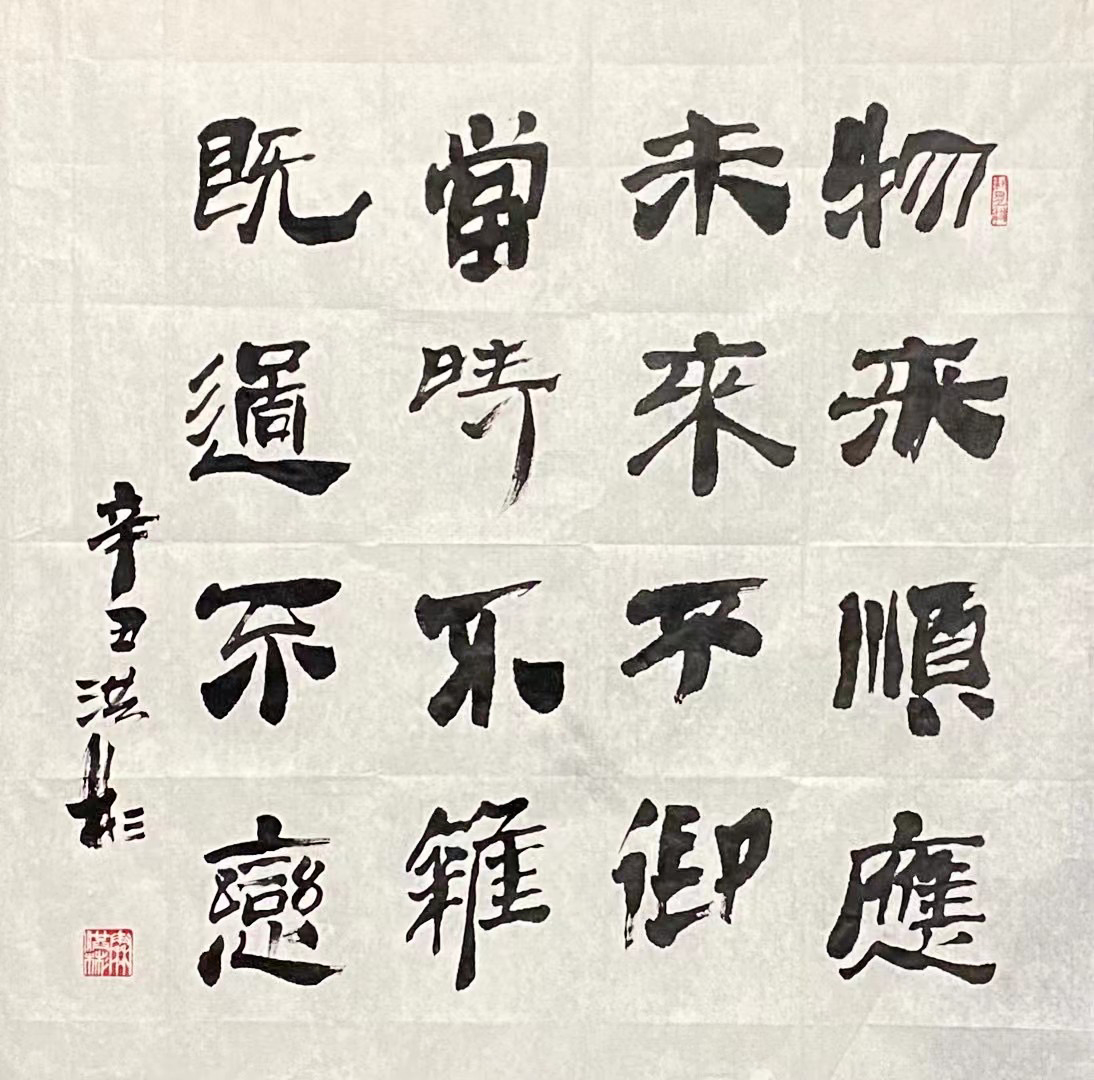 物来順應
未來不
當時不雜
既過不戀
辛丑洪彬